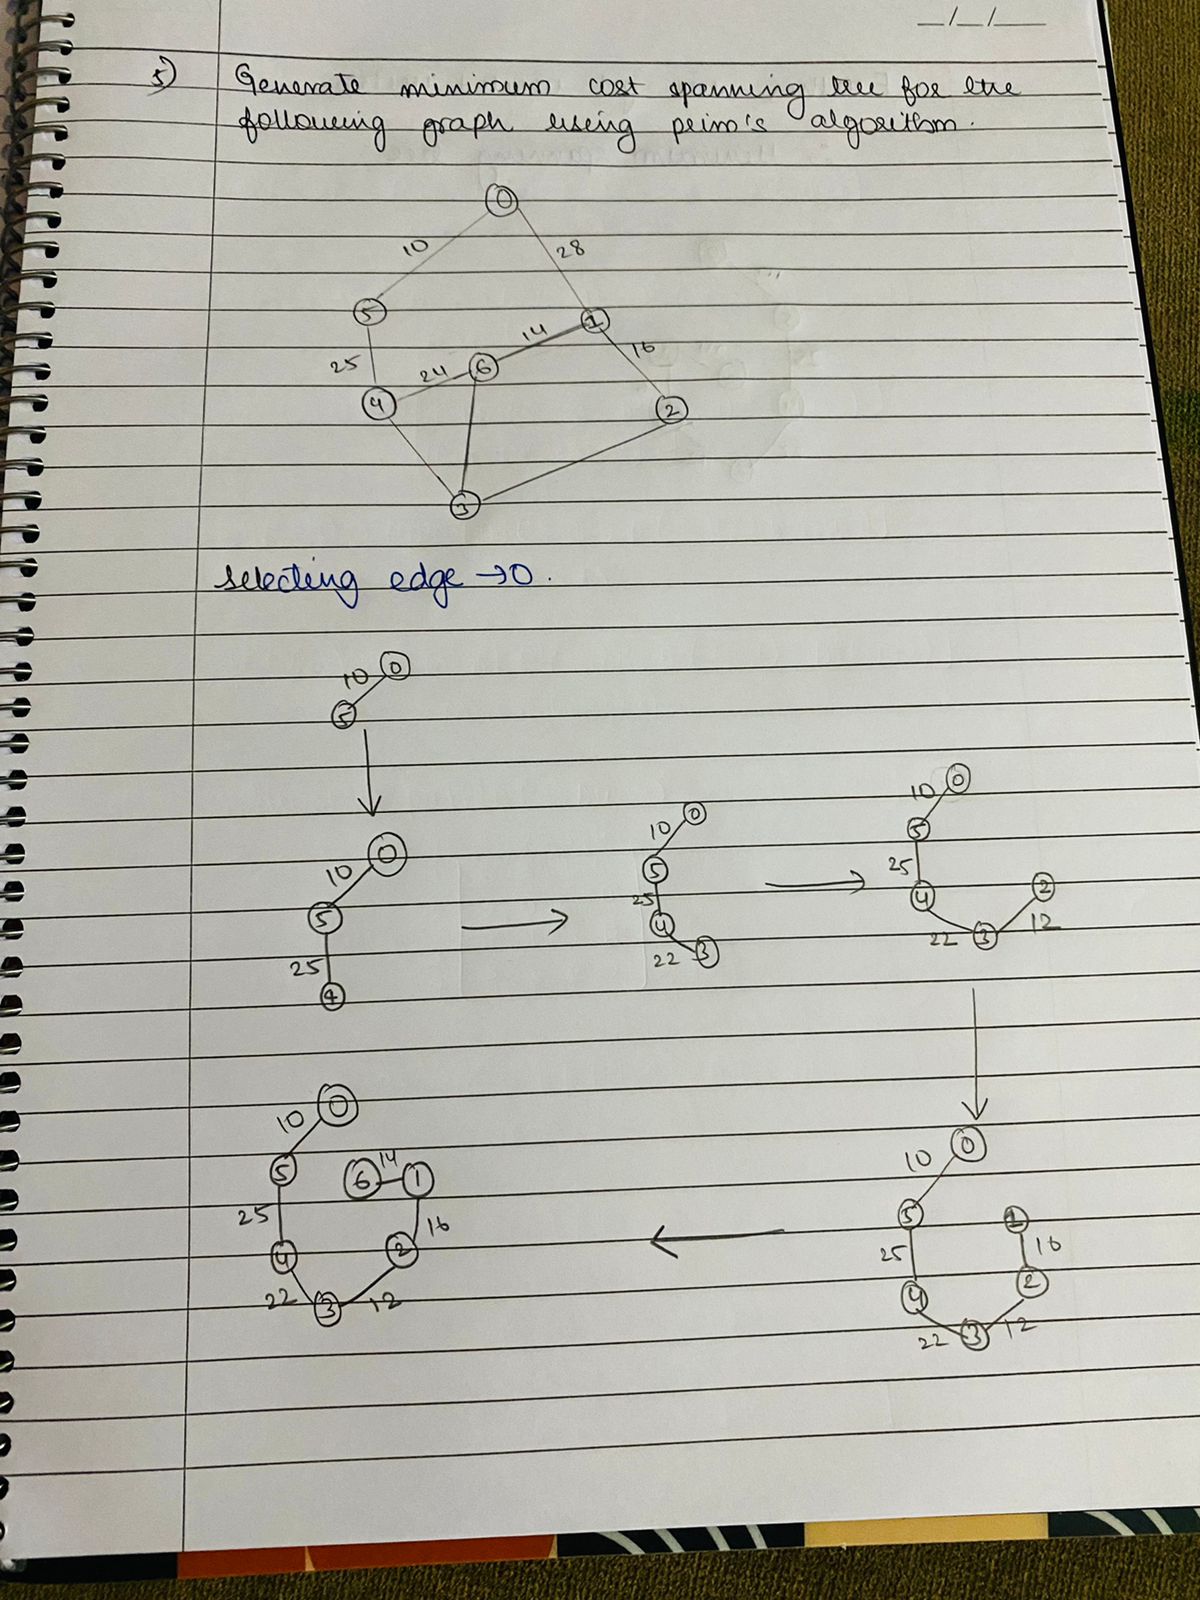 _/_/__
5) Generate minimum cost spanning tree for the
following graph using prim's algorithm.
0
10 28
5 1
14
25 24 6 16
4 2
3
selecting edge → 0.
10 0
5
10 0
5
25
4
10 0
5
25
4
22 3
10 0
5
25
4 2
22 3 12
10 0
5 1
25 16
4 2
22 3 12
10 0
5 6 14 1
25 16
4 2
22 3 12